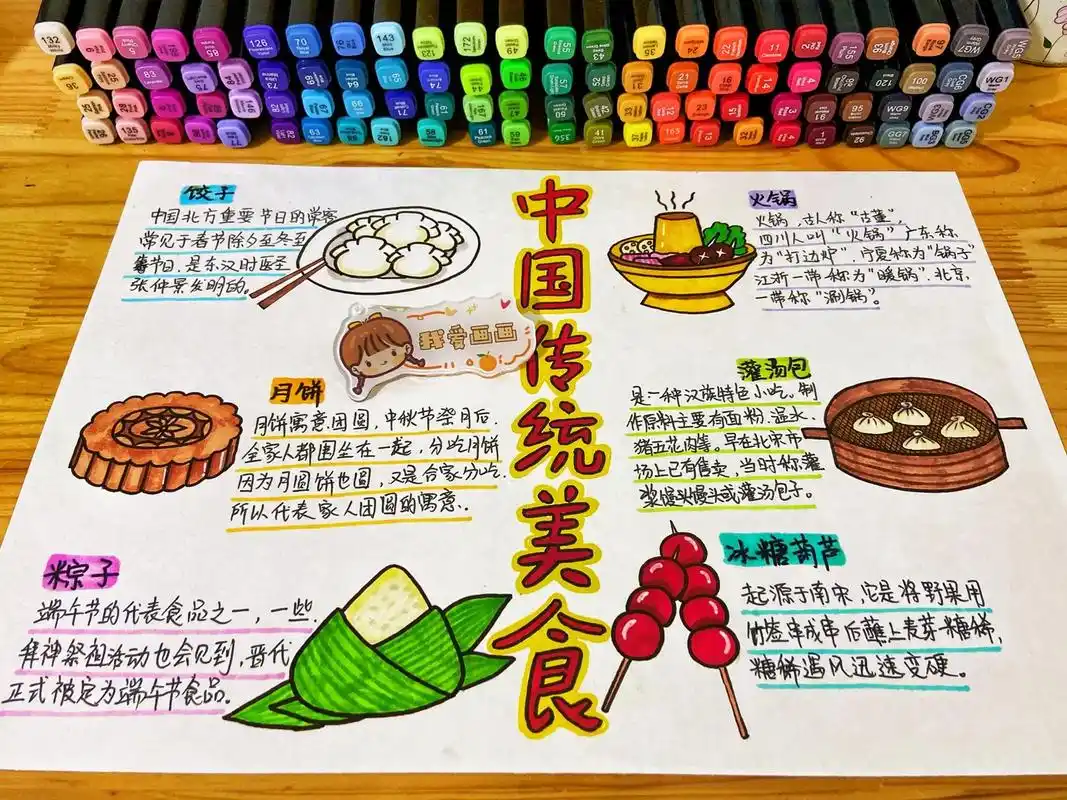 132 6 5 85 126 70 76 143 172 49 55 43 24 11 2 WG7
83 75 74 21 16 4 120 100 WG1
66 71 50 23 3 95 WG9
135 77 63 58 61 59 356 41 165 13 4 1 92
中国传统美食
饺子
中国北方重要节日的常客
常见于春节除夕至冬至
等节日，是东汉时医圣
张仲景发明的。
火锅
火锅，古人称“古董”，
四川人叫“火锅”广东称
为“打边炉”，宁夏称为“锅子”
江浙一带称为“暖锅”、北京
一带称“涮锅”。
我爱画画
月饼
月饼寓意团圆，中秋节祭月后
全家人都围坐在一起，分吃月饼
因为月圆饼也圆，又是合家分吃
所以代表家人团圆的寓意。
灌汤包
是一种汉族特色小吃。制
作原料主要有面粉、温水、
猪五花肉等。早在北宋市
场上已有售卖，当时称灌
浆馒头馒头或灌汤包子。
粽子
端午节的代表食品之一，一些
拜神祭祖活动也会见到，晋代
正式被定为端午节食品。
冰糖葫芦
起源于南宋，它是将野果用
竹签串成串后蘸上麦芽糖稀，
糖稀遇风迅速变硬。